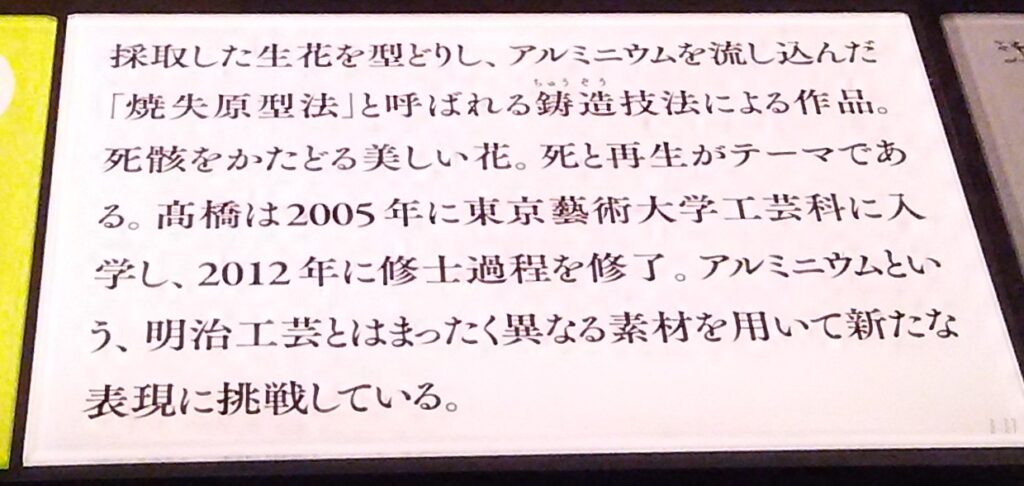 採取した生花を型どりし、アルミニウムを流し込んだ
「焼失原型法」と呼ばれる鋳造技法による作品。
ちゅうぞう
死骸をかたどる美しい花。死と再生がテーマであ
る。髙橋は2005年に東京藝術大学工芸科に入
学し、2012年に修士過程を修了。アルミニウムとい
う、明治工芸とはまったく異なる素材を用いて新たな
表現に挑戦している。